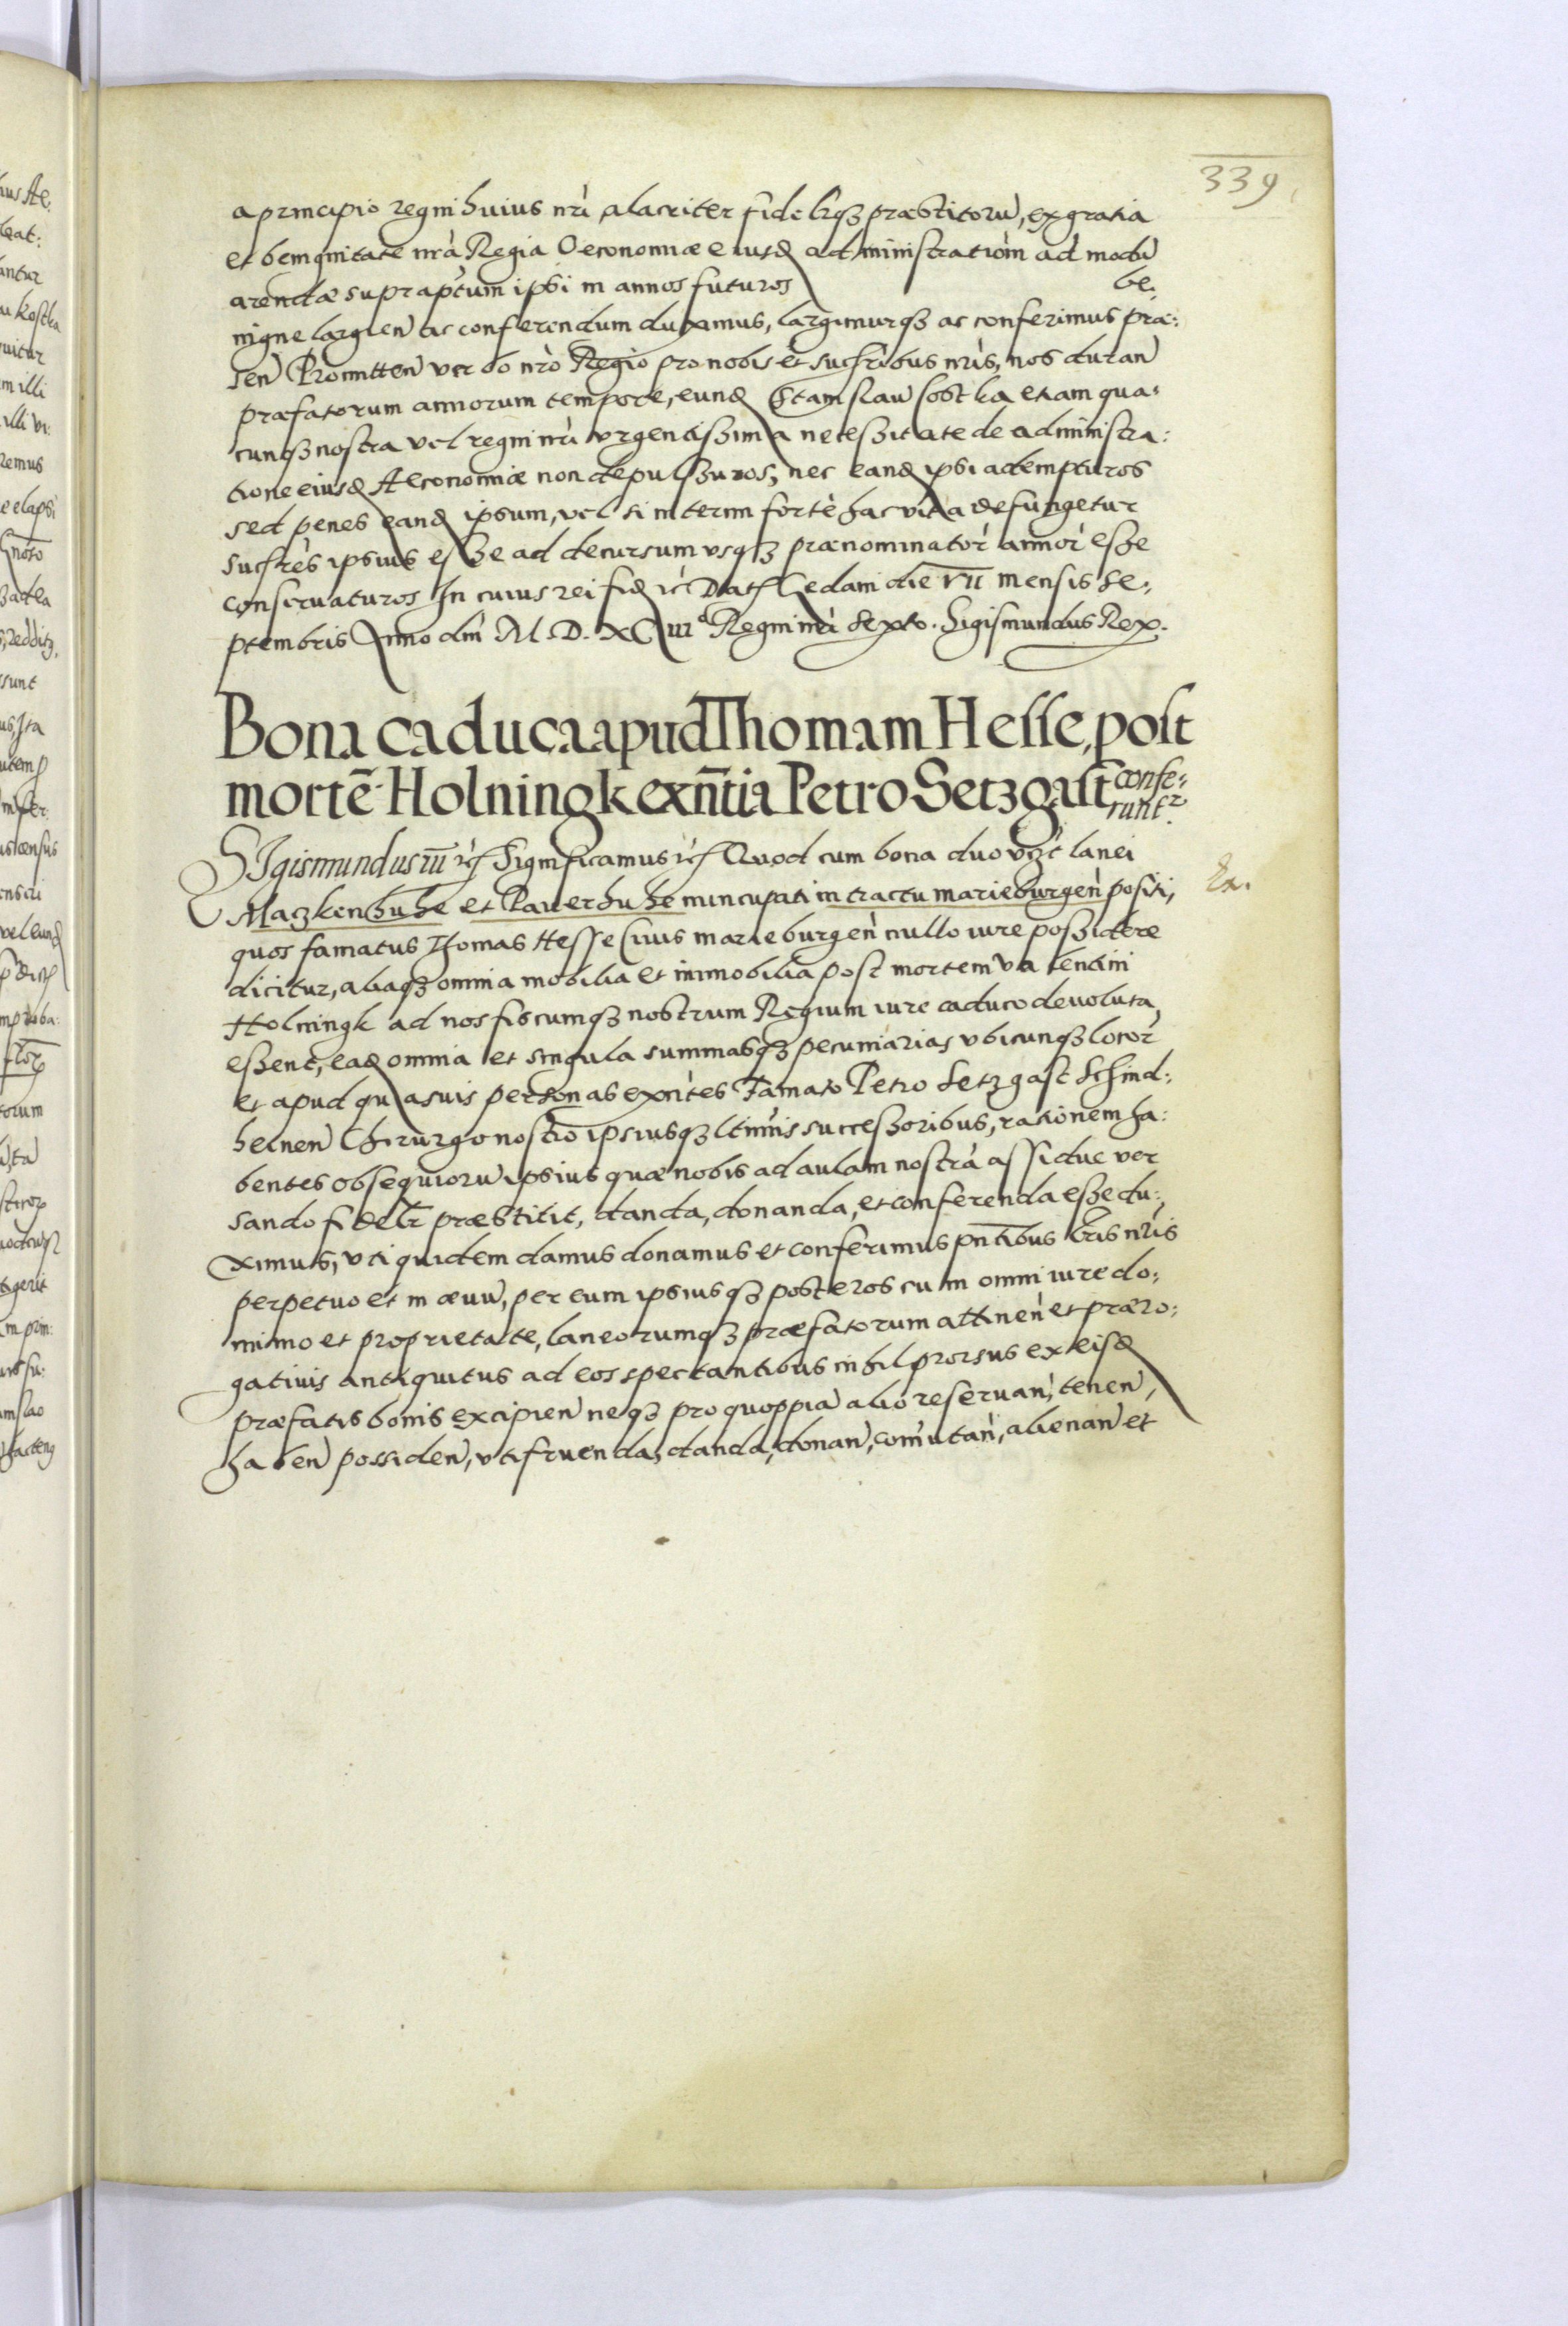 339
a principio regni huius nri alacriter fidelrqz præstitoru, ex gratia
et benignitate nrà Regia Oeconomiæ eiusd administratiom ad modu
arendæ supraptum ipsi in annos futuros be:
nigne largien ac conferendum duximus, largimurqz ac conferimus præ:
sen Promitten verbo nrò Regio pro nobis et sucsribus nris, nos duran
præfatorum annorum tempore, eund Stanislau Costka etiam qua:
cunqz nostra vel regni nri vrgentissima necessitate de administra:
tione eiusd Aeconomiæ non depulsuros, nec eand ipsi adempturos
sed penes eand ipsum, vel si interim fortè hac vita defungetur
sucsrès ipsius esse ad decursum vsqz prænominator annor esse
conseruaturos In cuius rei fid rc Dat Gedani die vii mensis Se:
ptembris Anno dm M.D.XCiiiº Regni nri Sexto. Sigismundus Rex.
Bona caduca apud Thomam Hesse, post
mortē Holningk exñtia Petro Setzgast confe:
runtr.
SIgismundus iii rc Significamus rc Quod cum bona duo vzt lanei
Ex.
Mazkenhuhe et Pauerhuhe nuncupati in tractu marieburgen positi,
quos famatus Thomas Hesse Ciuis marieburgen nullo iure possidere
dicitur, aliaqz omnia mobilia et immobilia post mortem Valentini
Holningk ad nos fiscumqz nostrum Regium iure caduco deuoluta
essent, ead omnia et singula summasqz pecuniarias vbicunqz locor
et apud quasuis personas exntes Famato Petro Setzgast Schind:
helnen Chirurgo nostro ipsiusqz ltimis successoribus, rationem ha:
bentes obsequioru ipsius quæ nobis ad aulam nostrà assidue ver
sando fidelr præstitit, danda, donanda, et conferenda esse du:
ximus, vti quidem damus donamus et conferimus pntibus lris nris
perpetuo et in æuu, per eum ipsiusqz posteros cum omni iure do:
minio et proprietate, laneorumqz præfatorum attinen et præro:
gatiuis antiquitus ad eos spectantibus nihil prorsus ex eisd
præfatis bonis excipien neqz pro quoppia alio reseruan, tenen,
haben possiden, vtifruenda, danda, donan, comutan, alienan et